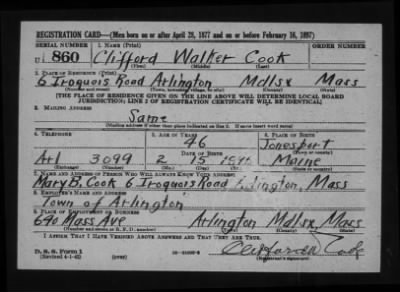 REGISTRATION CARD—(Men born on or after April 28, 1877 and on or before February 16, 1897)
SERIAL NUMBER 1. NAME (Print) ORDER NUMBER
U 860 Clifford Walker Cook
(First) (Middle) (Last)
2. PLACE OF RESIDENCE (Print)
6 Iroquois Road Arlington Mdlsx Mass
(Number and street) (Town, township, village, or city) (County) (State)
[THE PLACE OF RESIDENCE GIVEN ON THE LINE ABOVE WILL DETERMINE LOCAL BOARD
JURISDICTION; LINE 2 OF REGISTRATION CERTIFICATE WILL BE IDENTICAL]
3. MAILING ADDRESS
Same
[Mailing address if other than place indicated on line 2. If same insert word same]
4. TELEPHONE 5. AGE IN YEARS 6. PLACE OF BIRTH
46 Jonesport
DATE OF BIRTH (Town or county)
Arl 3099 2 15 Maine
(Exchange) (Number) (Mo.) (Day) (Yr.) (State or country)
7. NAME AND ADDRESS OF PERSON WHO WILL ALWAYS KNOW YOUR ADDRESS
Mary B. Cook 6 Iroquois Road Arlington, Mass
8. EMPLOYER'S NAME AND ADDRESS
Town of Arlington
9. PLACE OF EMPLOYMENT OR BUSINESS
Mass Ave Arlington Mdlsx Mass
(Number and street or R. F. D. number) (Town) (County) (State)
I AFFIRM THAT I HAVE VERIFIED ABOVE ANSWERS AND THAT THEY ARE TRUE.
D. S. S. Form 1
(Revised 4-1-42) (over) Cook